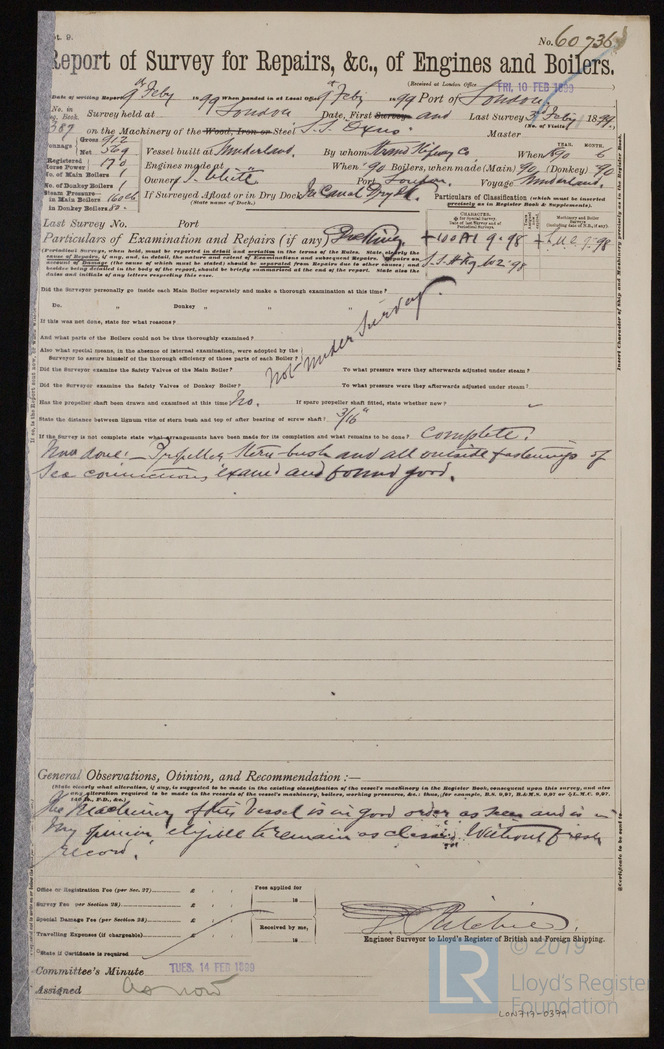 No. 60736
Report of Survey for Repairs, &c., of Engines and Boilers.
(Received at London Office FRI, 10 FEB 1899)
Date of writing Report 9 Feby 1899 When handed in at Local Office Feby 1899 Port of London
No. in Reg. Book. 387 Survey held at London Date, First Survey and Last Survey 3 Feby 1899
(No. of Visits)
on the Machinery of the Wood, Iron or Steel S.S. Oxus Master
Tonnage Gross 912 Net 569
Vessel built at Sunderland By whom Strand Slipway Co. When 1890 YEAR. MONTH. 6
Registered Horse Power 170
Engines made at When 90 Boilers, when made (Main) 90 (Donkey) 90
No. of Main Boilers 1
Owners J. White Port London Voyage Sunderland
No. of Donkey Boilers 1
Steam Pressure in Main Boilers 160 lb
in Donkey Boilers
If Surveyed Afloat or in Dry Dock In Canal Dry Dk.
(State name of Dock.)
Particulars of Classification (which must be inserted precisely as in Register Book & Supplements).
Last Survey No. Port
CHARACTER.
Machinery and Boiler Surveys
Particulars of Examination and Repairs (if any) Docking
+100A1 9.98 +L.M.C. 9.98
(Periodical Surveys, when held, must be reported in detail and seriatim in the terms of the Rules. State clearly the cause of Repairs, if any, and, in detail, the nature and extent of Examinations and subsequent Repairs. Repairs on account of Damage (the cause of which must be stated) should be separated from Repairs due to other causes; and besides being detailed in the body of the report, should be briefly summarized at the end of the report. State also the dates and initials of any letters respecting this case.
Did the Surveyor personally go inside each Main Boiler separately and make a thorough examination at this time?
Do. „ Donkey „ „ „
If this was not done, state for what reasons?
And what parts of the Boilers could not be thus thoroughly examined?
Also what special means, in the absence of internal examination, were adopted by the Surveyor to assure himself of the thorough efficiency of those parts of each Boiler?
Not under Survey.
Did the Surveyor examine the Safety Valves of the Main Boiler? To what pressure were they afterwards adjusted under steam?
Did the Surveyor examine the Safety Valves of Donkey Boiler? To what pressure were they afterwards adjusted under steam?
Has the propeller shaft been drawn and examined at this time? No. If spare propeller shaft fitted, state whether new?
State the distance between lignum vitæ of stern bush and top of after bearing of screw shaft? 3/16"
If the Survey is not complete state what arrangements have been made for its completion and what remains to be done? Complete.
Now done:- Propeller, stern bush and all outside fastenings of
sea connections exam'd and found good.
General Observations, Opinion, and Recommendation :—
(State clearly what alteration, if any, is suggested to be made in the existing classification of the vessel's machinery in the Register Book, consequent upon this survey, and also any alteration required to be made in the records of the vessel's machinery, boilers, working pressure, &c.: thus, for example, B.S. 9,97, B.&M.S. 9,97 or ✠L.M.C. 9,97, 140 lb., F.D., &c.)
The Machinery of this Vessel is in good order as seen and is in
my opinion eligible to remain as classed Without fresh
record.
Office or Registration Fee (per Sec. 27) £
Fees applied for
18
Survey Fee (per Section 28) £
Special Damage Fee (per Section 28) £
Received by me,
18
Travelling Expenses (if chargeable) £
State if Certificate is required
Ritchie
Engineer Surveyor to Lloyd's Register of British and Foreign Shipping.
Committee's Minute TUES. 14 FEB 1899
Assigned as now
Insert Character of Ship and Machinery precisely as in the Register Book.
© 2019
LR
Lloyd's Register
Foundation
LON717-0379